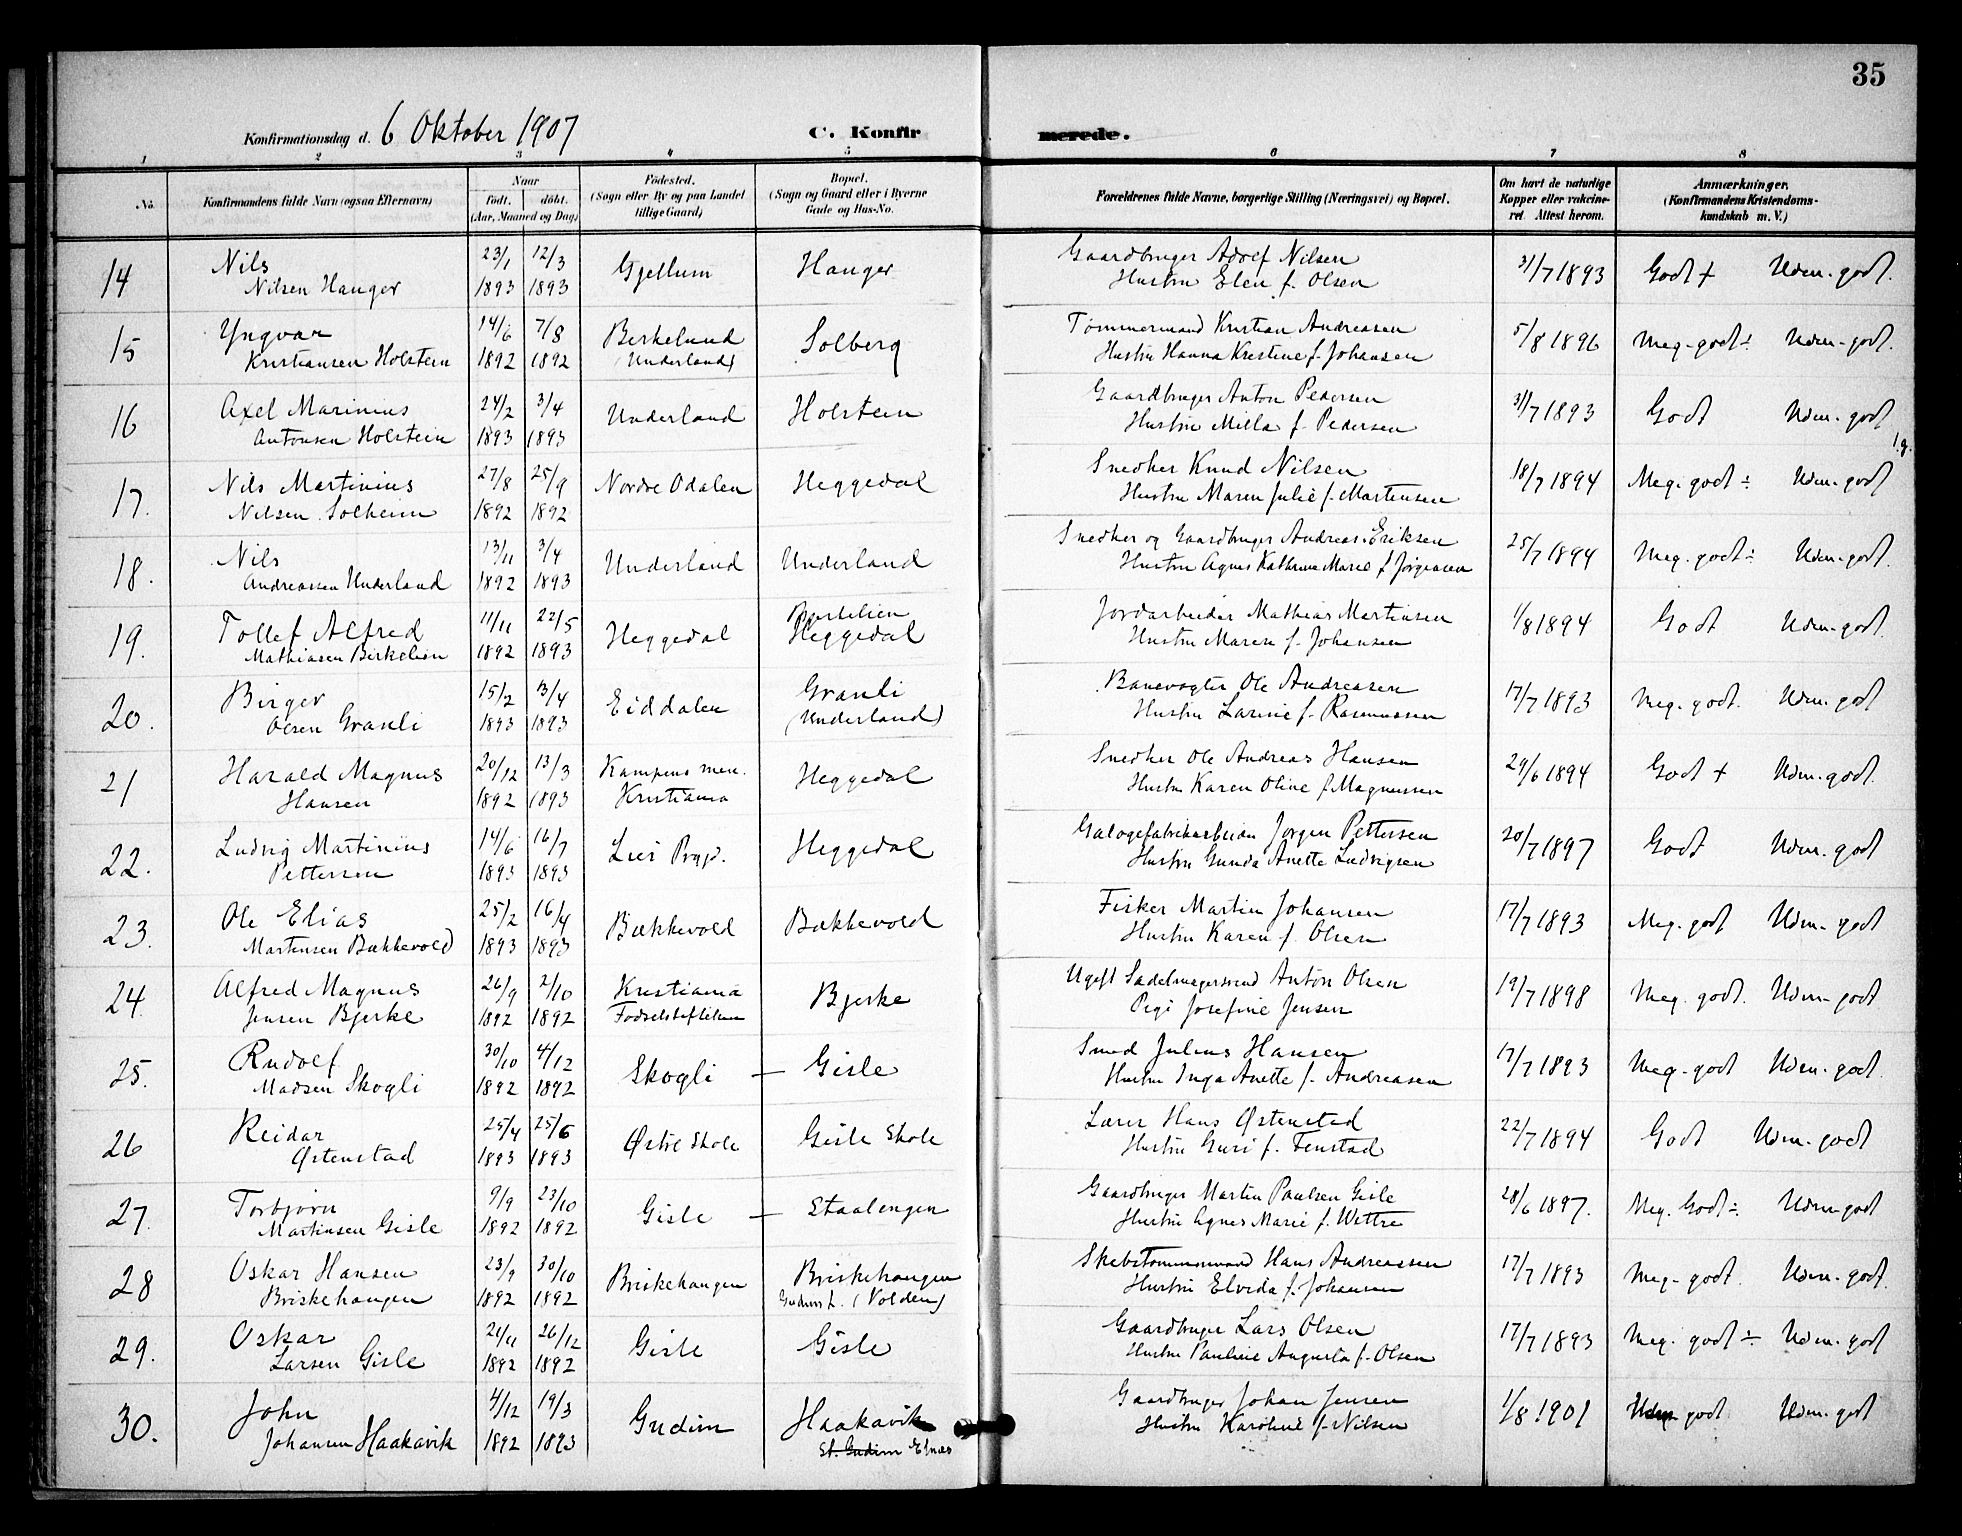 35
Konfirmationsdag d. 6 Oktober 1907
C. Konfirmerede.
1 2 3 4 5 6 7 8
No.
Konfirmandens fulde Navn (ogsaa Efternavn)
Naar
født. døbt.
(Aar, Maaned og Dag)
Fødested.
(Sogn eller By og paa Landet
tillige Gaard)
Bopæl.
(Sogn og Gaard eller i Byerne
Gade og Hus-No.
Forældrenes fulde Navne, borgerlige Stilling (Næringsvei) og Bopæl.
Om havt de naturlige
Kopper eller vakcine-
ret. Attest herom.
Anmærkninger.
(Konfirmandens Kristendoms-
kundskab m. V.)
14 Nils 23/1 12/3 Gjellum Hanger Gaardbruger Adolf Nilsen 31/7 1893 Godt + Udm. godt.
Nilsen Hanger 1893 1893 Hustru Elen f. Olsen
15 Yngvar 14/6 7/8 Berkelund Solberg Tømmermand Kristian Andreasen 5/8 1896 Meg. godt ÷ Udm. godt.
Kristiansen Holstein 1892 1892 (Underland) Hustru Hanna Kristine f. Johansen
16 Axel Marinius 24/2 3/4 Underland Holstein Gaardbruger Anton Pedersen 31/7 1893 Godt Udm. godt
Antonsen Holstein 1893 1893 Hustru Milla f. Pedersen
17. Nils Martinius 27/8 25/9 Nordre Odalen Heggedal Snedker Knud Nilsen 18/7 1894 Meg. godt ÷ Udm. godt
Nilsen Solheim 1892 1892 Hustru Maren Julie f. Martensen
18. Nils 13/11 3/4 Underland Underland Snedker og Gaardbruger Andreas Eriksen 25/7 1894 Meg. godt ÷ Udm. godt.
Andreassen Underland 1892 1893 Hustru Agnes Kathrine Marie f Jørgensen
19. Tollef Alfred 11/11 22/5 Heggedal Heggedal Jordarbeider Mathias Martinsen 1/8 1894 Godt Udm. godt.
Mathiasen Birkelien 1892 1893 Hustru Maren f. Johansen
20. Birger 15/2 3/4 Eiddalen Granli Banevogter Ole Andreasen 17/7 1893 Meg. godt. Udm. godt
Olsen Granli 1893 1893 (Underland) Hustru Larine f. Rasmussen
21 Harald Magnus 20/12 13/3 Kampens men. Heggedal Snedker Ole Andreas Hansen 29/6 1894 Godt + Udm. godt.
Hansen 1892 1893 Kristiania Hustru Karen Oline f Magnussen
22. Ludvig Martinius 14/6 16/7 Lier Prgjd. Heggedal Galogefabrikarbeider Jørgen Pettersen 20/7 1897 Godt Udm. godt
Pettersen 1893 1893 Hustru Gunda Anette Ludvigsen
23. Ole Elias 25/2 16/4 Bækkevold Bækkevold Fisker Martin Johansen 17/7 1893 Meg. godt Udm. godt
Martinsen Bækkevold 1893 1893 Hustru Karen f. Olsen
24. Alfred Magnus 26/9 2/10 Kristiania Bjerke Ugift Sadelmagersvend Anton Olsen 19/7 1898 Meg. godt. Udm. godt.
Jensen Bjerke 1892 1892 Fødselsstiftelsen Pige Josefine Jensen
25. Rudolf 30/10 4/12 Skogli — Gisle Smed Julius Hansen 17/7 1893 Meg. godt Udm. godt.
Madsen Skogli 1892 1892 Hustru Inga Anette f. Andreasen
26 Reidar 25/4 25/6 Østre Skole Gisle Skole Lærer Hans Østenstad 22/7 1894 Godt Udm. godt
Østenstad 1893 1893 Hustru Guri f. Fenstad
27. Torbjørn 9/9 23/10 Gisle — Staalengen Gaardbruger Martin Paulsen Gisle 28/6 1897. Meg. Godt ÷ Udm. godt
Martinsen Gisle 1892 1892 Hustru Agnes Marie f. Wettre
28 Oskar Hansen 23/9 30/10 Briskehaugen Briskehaugen Skibstømmermand Hans Andreassen 17/7 1893 Meg. godt. Udm. godt.
Briskehaugen 1892 1892 (Volden) Hustru Elvida f. Johansen
29. Oskar 21/11 26/12 Gisle Gisle Gaardbruger Lars Olsen 17/7 1893 Meg. godt ÷ Udm. godt
Larsen Gisle 1892 1892 Hustru Pauline Augusta f. Olsen
30. John 4/12 19/3 Gudim Haakavik Gaardbruger Johan Jensen 1/8 1901 godt Udm. godt
Johansen Haakavik 1892 1893 St. Gudim Elnæs Hustru Karoline f. Nilsen